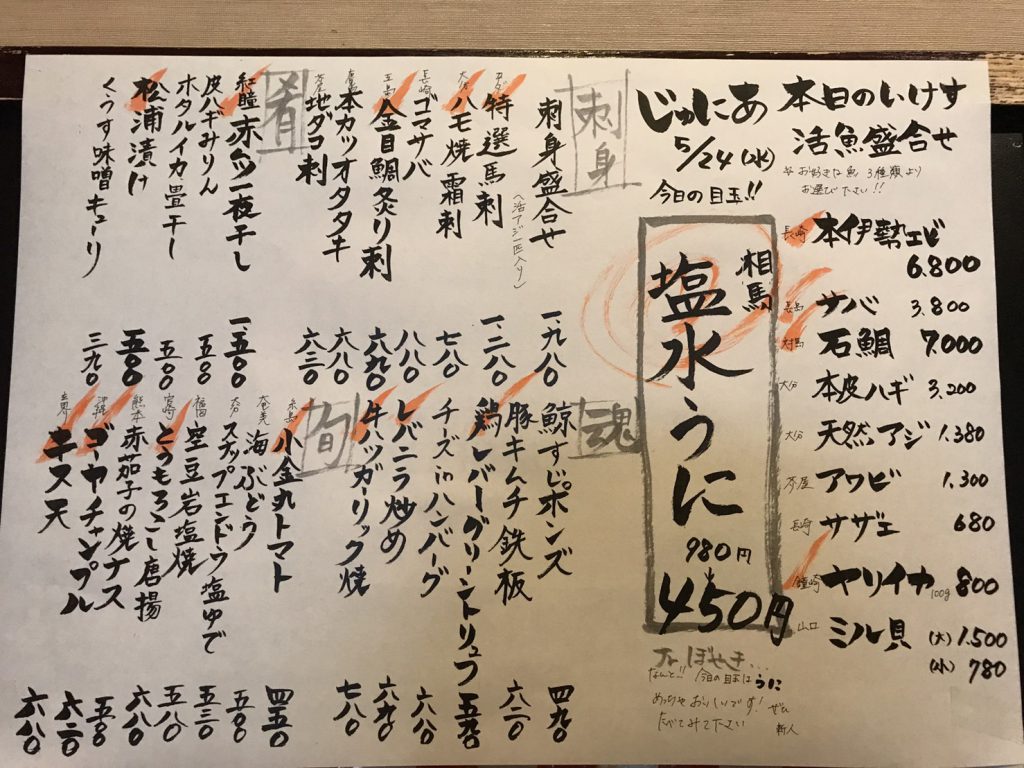 本日のいけす
活魚盛合せ
お好きな魚 3種類より
お選び下さい!!
長崎 本伊勢エビ 6.800
長島 サバ 3.800
対馬 石鯛 7.000
大分 本皮ハギ 3.200
大分 天然アジ 1.380
芦屋 アワビ 1.300
長崎 サザエ 680
鐘崎 ヤリイカ 100g 800
山口 ミル貝 (大) 1.500
(小) 780
じゅにあ
5/24(水)
今日の目玉!!
相馬
塩水うに
980円
450円
ぼやき...
なんと!! 今日の目玉は うに
めっちゃおいしいです! ぜひ
たべてみて下さい
新人
刺身
刺身盛合せ 一、九八〇
(活アジ一匹入り)
特選馬刺 一、二八〇
大分 ハモ焼霜刺 七八〇
長崎 ゴマサバ 八八〇
五島 金目鯛炙り刺 六九〇
本カツオタタキ 六八〇
芦屋 地ダコ刺 六三〇
肴
紅瞳 赤ムツ一夜干し 一、五〇〇
皮ハギみりん 五〇〇
ホタルイカ畳干し 五〇〇
松浦漬け 五〇〇
くうす味噌キューリ 三九〇
魂
鯨すじポンズ 四九〇
豚キムチ鉄板 六二〇
鶏レバーグリーントリュフ 五九〇
チーズinハンバーグ 六八〇
レバニラ炒め 六九〇
牛ハツガーリック焼 七八〇
旬
糸島 小金丸トマト 四五〇
奄美 海ぶどう 五〇〇
大分 スナップエンドウ塩ゆで 五三〇
福岡 空豆岩塩焼 五八〇
宮崎 とうもろこし唐揚 六八〇
熊本 赤茄子の焼ナス 五八〇
沖縄 ゴーヤチャンプル 六二〇
玄界 キス天 六八〇